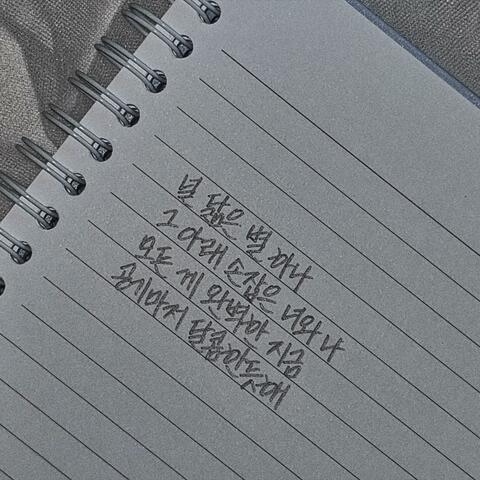 널 닮은 별 하나
그 아래 소삽은 너와 나
모든 게 완벽한 지금
공기마저 달콤한듯해